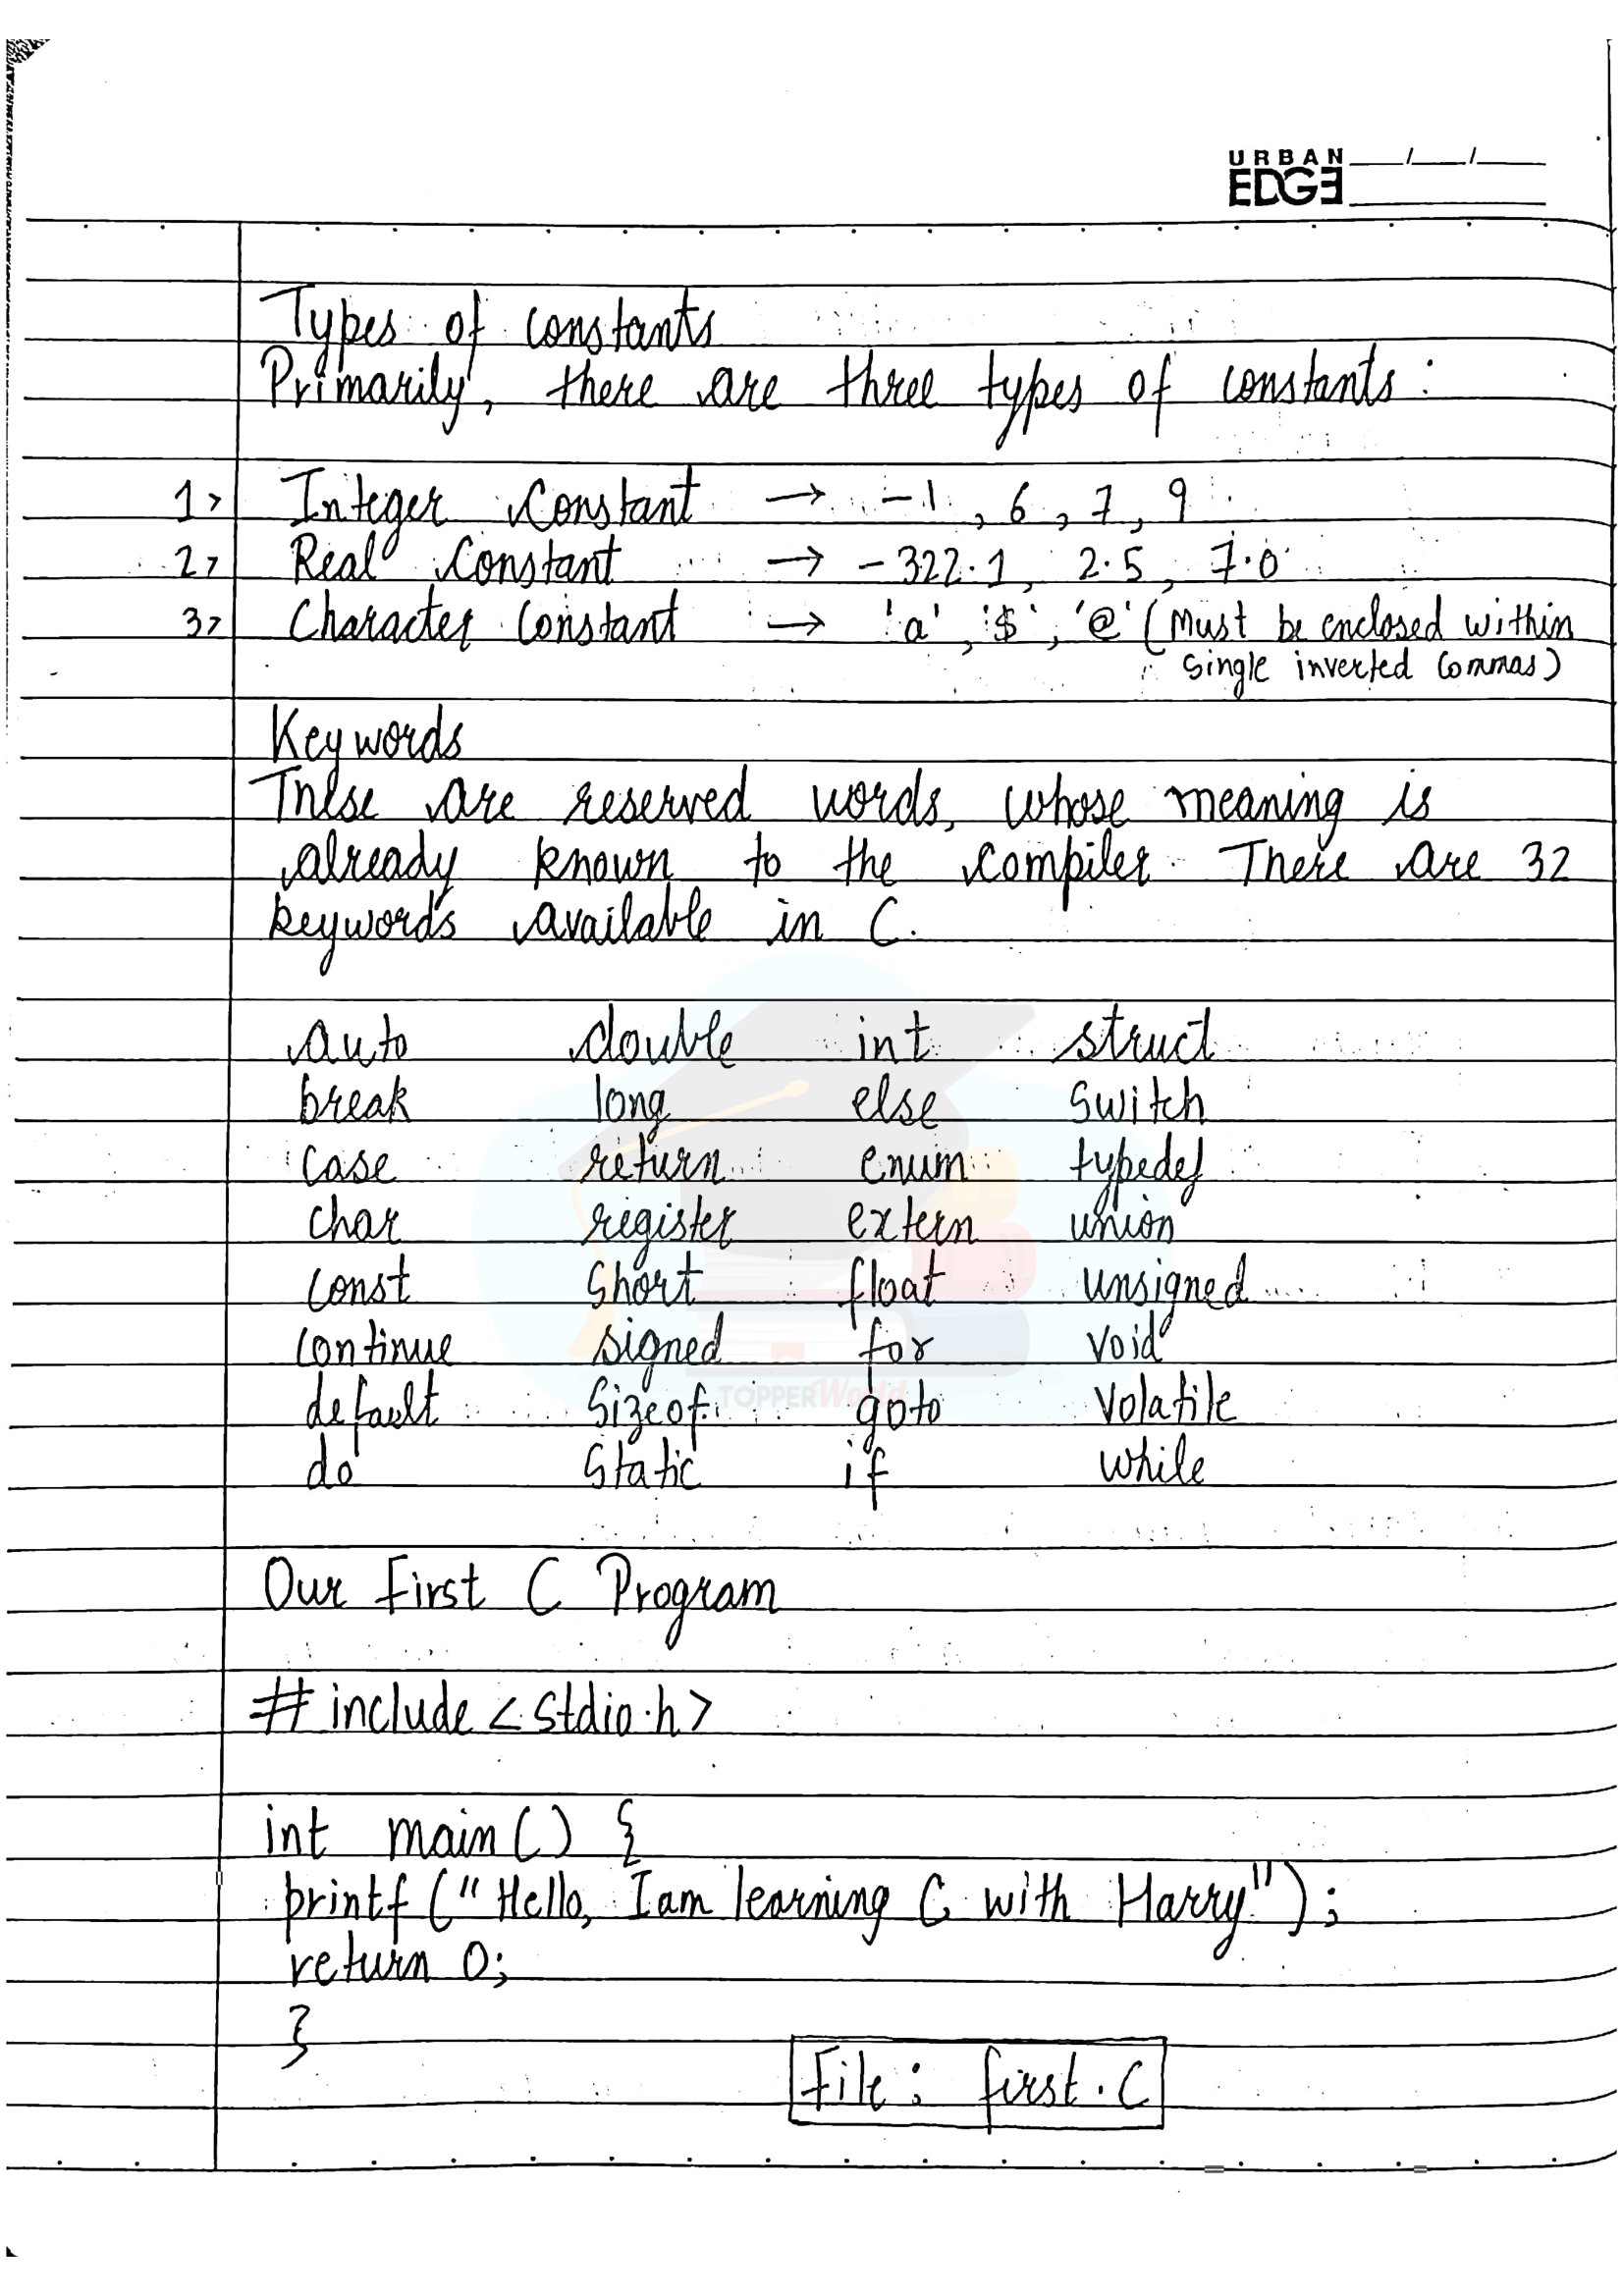 URBAN
EDGE
Types of constants
Primarily, there are three types of constants:
1> Integer Constant → -1, 6, 7, 9
2> Real Constant → -322.1, 2.5, 7.0
3> Character Constant → 'a', '$', '@' (Must be enclosed within
single inverted commas)
Keywords
These are reserved words, whose meaning is
already known to the compiler. There are 32
keywords available in C.
auto double int struct
break long else switch
case return enum typedef
char register extern union
const short float unsigned
continue signed for void
default sizeof goto volatile
TOPPERWorld
do static if while
Our First C Program
#include <stdio.h>
int main() {
printf("Hello, I am learning C with Harry");
return 0;
}
File: first.C